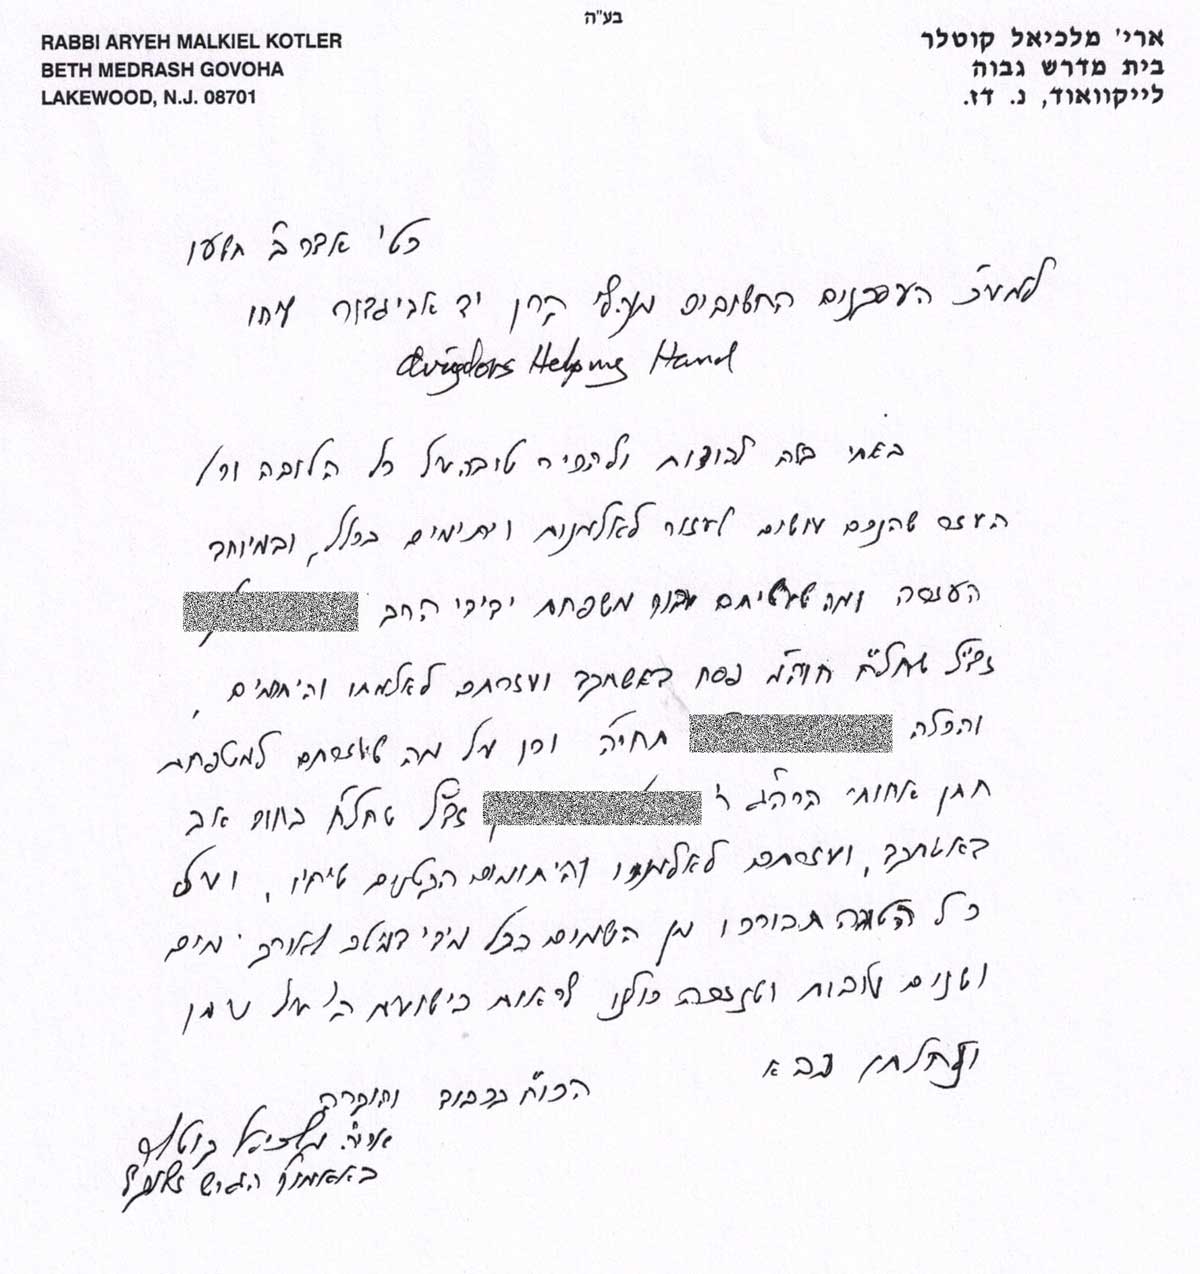 בע"ה
RABBI ARYEH MALKIEL KOTLER
BETH MEDRASH GOVOHA
LAKEWOOD, N.J. 08701
ארי' מלכיאל קוטלר
בית מדרש גבוה
לייקוואוד, נ. דז.
כט' אדר ב' תשע"ו
למע"כ העסקנים החשובים מנהלי קרן יד אביגדור שיחיו
Avigdors Helping Hand
באתי בזה להודות ולהכיר טובה על כל הטובה ורו'
העזר שהנכם עושים לעזור לאלמנות ויתומים בכלל, ובמיוחד
העזרה ומה שעשיתם עבור משפחת ידידי הרב
זצ"ל שחל"ח חוה"מ פסח דאשתקד ועזרתם לאלמנתו והיתומים,
והכלה תחי' וכן על מה שעזרתם למשפחת
חתן אחותי הרה"ג ר' זצ"ל שחל"ח בחודש אב
דאשתקד, ועזרתם לאלמנתו והיתומים הקטנים שיחיו, ועל
כל הטובה תבורכו מן השמים בכל מידי דמיטב ואורך ימים
ושנים טובות ושנזכה כולנו לראות בישועת ה' על עמו
ונחלתו בב"א
הכו"ח בכבוד והוקרה
ארי' מלכיאל קוטלר
באאמו"ר הגר"ש זצוק"ל